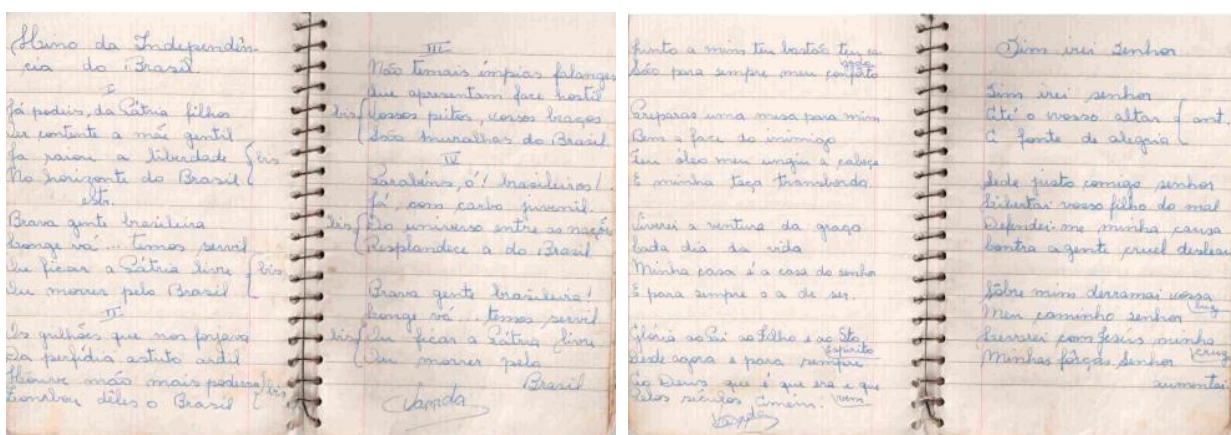 Hino da Independên-
cia do Brasil.
I
Já podeis, da Pátria filhos
Ver contente a mãe gentil
Já raiou a liberdade
No horizonte do Brasil
bis
estr.
Brava gente brasileira
Longe vá... temor servil
Ou ficar a Pátria livre
Ou morrer pelo Brasil
bis
II
Os grilhões que nos forjava
Da perfídia astuto ardil
Houve mão mais poderosa
Zombou dêles o Brasil
bis
III
Não temais ímpias falanges
Que apresentam face hostil
bis
Vossos peitos, vossos braços
São muralhas do Brasil
IV
Parabéns, ó! brasileiros!
Já, com garbo juvenil.
bis
Do universo entre as nações
Resplandece a do Brasil
Brava gente brasileira!
Longe vá... temor servil
bis
Ou ficar a Pátria livre
Ou morrer pelo
Brasil
Junto a mim teu bastão teu ca
jado
São para sempre meu conforto
Preparas uma mesa para mim
Bem a face do inimigo
Teu óleo meu ungiu a cabeça
E minha taça transborda.
Viverei a ventura da graça
Cada dia da vida
Minha casa é a casa do senhor
E para sempre o a de ser.
Glória ao Pai ao Filho e ao Sto.
Espírito
Desde agora e para sempre
Ao Deus que é que era e que
vem
Pelos séculos Amém.
Sim irei Senhor
Sim irei senhor
Até o vosso altar
A fonte de alegria
ant.
Sede justo comigo senhor
Libertai vosso filho do mal
Defendei-me minha causa
Contra a gente, cruel desleal
Sôbre mim derramai vossa
luz
Meu caminho senhor
com Jesús minha
cruz
Minhas fôrças Senhor
aumentai